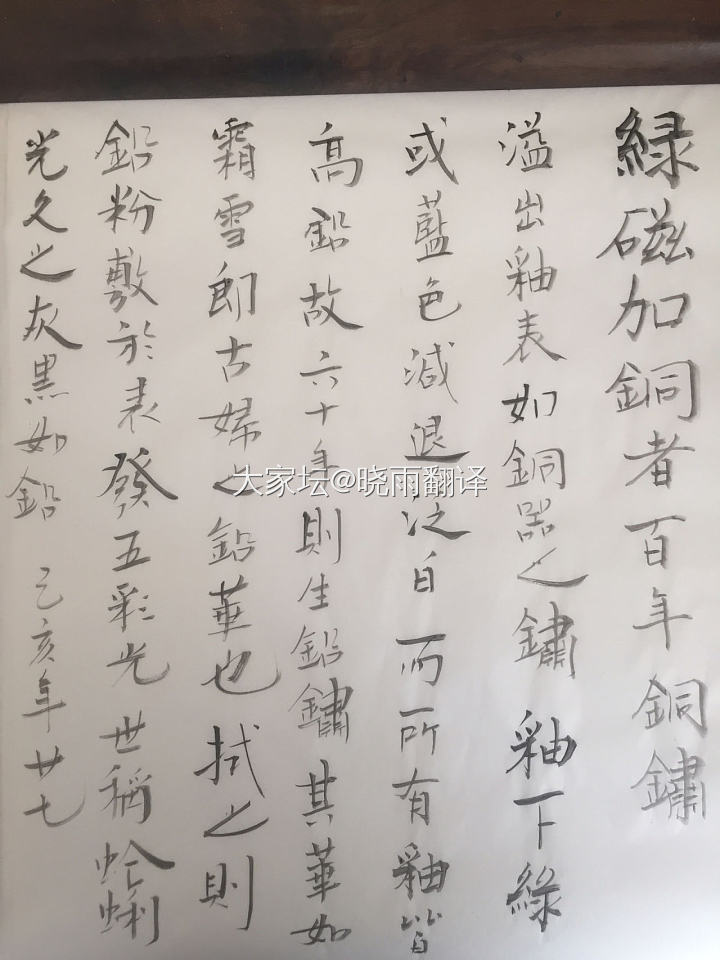 綠磁加銅者百年銅鏽
溢出釉表如銅器之鏽釉下綠
或藍色減退泛白而所有釉皆
高鉛故六十年則生鉛鏽其華如
霜雪即古婦之鉛華也拭之則
鉛粉敷於表發五彩光世稱蛤蜊
光久之灰黑如鉛 己亥年廿七
大家坛@晓雨翻译